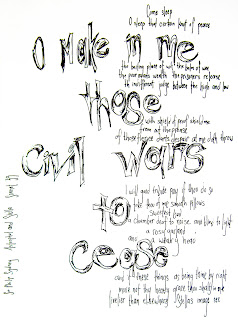 Come sleep
O sleep that certain knot of peace
O Make in me
the baiting place of wit the balm of woe
the poor mans wealth the prisoners release
th indifferent judge between the high and low
those
with shield of proof shield me
from out the prease
of those fierce darts despair at me doth throw
civil wars
to
I will good tribute pay if thou do so
take thou of me smooth pillows
sweetest bed
a chamber deaf to noise and blind to light
a rosy garland
and a weary head
cease
and if these things as being thine by right
move not thy heavy grace thou shalt in me
livelier than elsewhere Stellas image see
Sir Philip Sydney Astrophel and Stella Sonnet 39